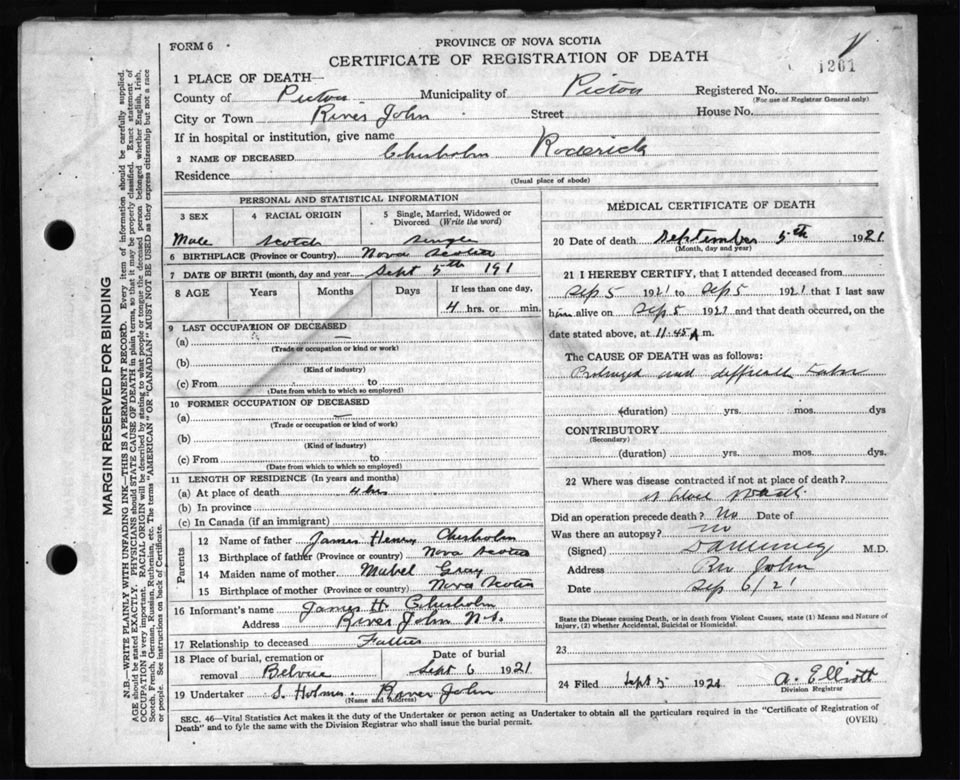 PROVINCE OF NOVA SCOTIA
FORM 6
CERTIFICATE OF REGISTRATION OF DEATH
1201
1 PLACE OF DEATH—
County of Pictou Municipality of Pictou Registered No.
(For use of Registrar General only)
City or Town River John Street House No.
If in hospital or institution, give name
2 NAME OF DECEASED Chisholm Roderick
Residence
(Usual place of abode)
PERSONAL AND STATISTICAL INFORMATION
3 SEX 4 RACIAL ORIGIN 5 Single, Married, Widowed or Divorced (Write the word)
Male Scotch Single
6 BIRTHPLACE (Province or Country) Nova Scotia
7 DATE OF BIRTH (month, day and year) Sept 5th 191
8 AGE Years Months Days If less than one day,
4 hrs. or min.
9 LAST OCCUPATION OF DECEASED
(a)
(Trade or occupation or kind or work)
(b)
(Kind of industry)
(c) From to
(Date from which to which so employed)
10 FORMER OCCUPATION OF DECEASED
(a) —
(Trade or occupation or kind of work)
(b)
(Kind of industry)
(c) From to
(Date from which to which so employed)
11 LENGTH OF RESIDENCE (In years and months)
(a) At place of death 4 hrs
(b) In province
(c) In Canada (if an immigrant)
Parents
12 Name of father James Henry Chisholm
13 Birthplace of father (Province or country) Nova Scotia
14 Maiden name of mother Mabel Gray
15 Birthplace of mother (Province or country) Nova Scotia
16 Informant's name James H. Chisholm
Address River John N.S.
17 Relationship to deceased Father
18 Place of burial, cremation or removal Belvue Date of burial Sept 6 1921
19 Undertaker S. Holmes River John
(Name and Address)
MEDICAL CERTIFICATE OF DEATH
20 Date of death September 5th 1921
(Month, day and year)
21 I HEREBY CERTIFY, that I attended deceased from
Sep 5 1921 to Sep 5 1921 that I last saw
him alive on Sep 5 1921 and that death occurred, on the
date stated above, at 11.45 A m.
The CAUSE OF DEATH was as follows:
Prolonged and difficult Labor
(duration) yrs. mos. dys
CONTRIBUTORY
(Secondary)
(duration) yrs. mos. dys.
22 Where was disease contracted if not at place of death?
at place
Did an operation precede death? No Date of
Was there an autopsy? no
(Signed) M.D.
Address Riv John
Date Sep 6/21
State the Disease causing Death, or in death from Violent Causes, state (1) Means and Nature of
Injury, (2) whether Accidental, Suicidal or Homicidal.
23
24 Filed Sept 5 1921 A. Elliott
Division Registrar
SEC. 46—Vital Statistics Act makes it the duty of the Undertaker or person acting as Undertaker to obtain all the particulars required in the "Certificate of Registration of
Death" and to fyle the same with the Division Registrar who shall issue the burial permit.
(OVER)
MARGIN RESERVED FOR BINDING
N.B.—WRITE PLAINLY WITH UNFADING INK—THIS IS A PERMANENT RECORD. Every item of information should be carefully supplied.
AGE should be stated EXACTLY. PHYSICIANS should STATE CAUSE OF DEATH in plain terms, so that it may be properly classified. Exact statement of
OCCUPATION is very important. RACIAL ORIGIN will be described by stating to what people or tongue the deceased person belonged whether English, Irish,
Scotch, French, German, Russian, Ruthenian, etc. The terms "AMERICAN" OR "CANADIAN" MUST NOT BE USED as they express citizenship but not a race
or people. See instructions on back of Certificate.